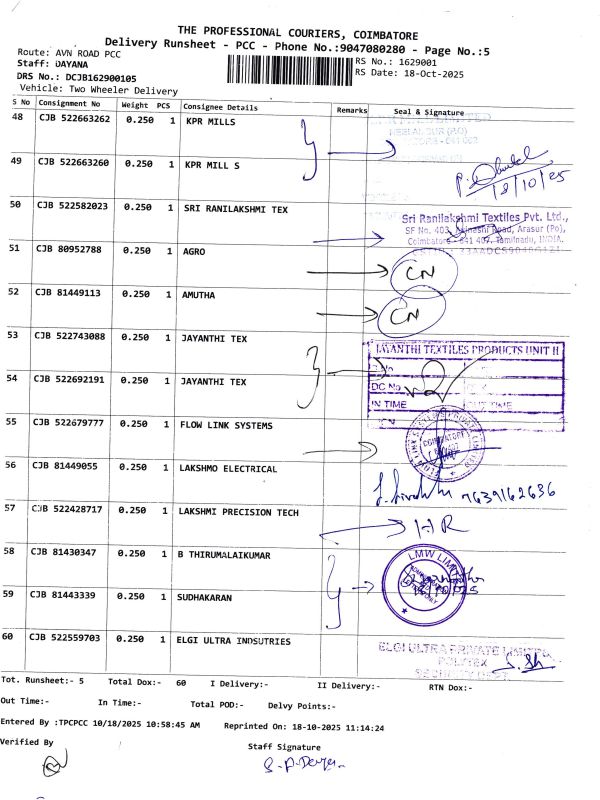 THE PROFESSIONAL COURIERS, COIMBATORE
Delivery Runsheet - PCC - Phone No.:9047080280 - Page No.:5
Route: AVN ROAD PCC
RS No.: 1629001
Staff: DAYANA
RS Date: 18-Oct-2025
DRS No.: DCJB162900105
Vehicle: Two Wheeler Delivery
S No Consignment No Weight PCS Consignee Details Remarks Seal & Signature
48 CJB 522663262 0.250 1 KPR MILLS
49 CJB 522663260 0.250 1 KPR MILL S
18/10/25
50 CJB 522582023 0.250 1 SRI RANILAKSHMI TEX
Sri Ranilakshmi Textiles Pvt. Ltd.,
SF No. 403, Road, Arasur (Po),
Coimbatore - 641 407, Tamilnadu, INDIA.
51 CJB 80952788 0.250 1 AGRO CN
52 CJB 81449113 0.250 1 AMUTHA CN
53 CJB 522743088 0.250 1 JAYANTHI TEX
JAYANTHI TEXTILES PRODUCTS UNIT II
54 CJB 522692191 0.250 1 JAYANTHI TEX
DC No
IN TIME
55 CJB 522679777 0.250 1 FLOW LINK SYSTEMS
COIMBATORE
56 CJB 81449055 0.250 1 LAKSHMO ELECTRICAL
7639162636
57 CJB 522428717 0.250 1 LAKSHMI PRECISION TECH
HR
58 CJB 81430347 0.250 1 B THIRUMALAIKUMAR
LMW LIMITED
59 CJB 81443339 0.250 1 SUDHAKARAN
60 CJB 522559703 0.250 1 ELGI ULTRA INDSUTRIES
ELGI ULTRA PRIVATE LIMITED
Tot. Runsheet:- 5 Total Dox:- 60 I Delivery:- II Delivery:- RTN Dox:-
Out Time:- In Time:- Total POD:- Delvy Points:-
Entered By :TPCPCC 10/18/2025 10:58:45 AM Reprinted On: 18-10-2025 11:14:24
Verified By
Staff Signature